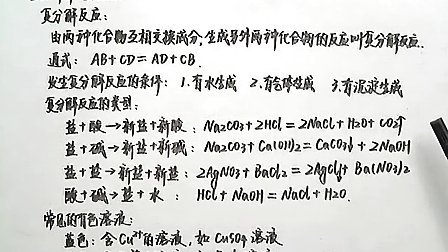 复分解反应:
由两种化合物互相交换成分,生成另外两种化合物的反应叫复分解反应.
通式: AB+CD=AD+CB.
发生复分解反应的条件: 1.有水生成 2.有气体生成 3.有沉淀生成
复分解反应的类型:
盐+酸→新盐+新酸: Na2CO3+2HCl=2NaCl+H2O+CO2↑
盐+碱→新盐+新碱: Na2CO3+Ca(OH)2=CaCO3↓+2NaOH
盐+盐→新盐+新盐: 2AgNO3+BaCl2=2AgCl↓+Ba(NO3)2
酸+碱→盐+水: HCl+NaOH=NaCl+H2O.
常见的有色溶液:
蓝色: 含Cu2+的溶液, 如CuSO4溶液